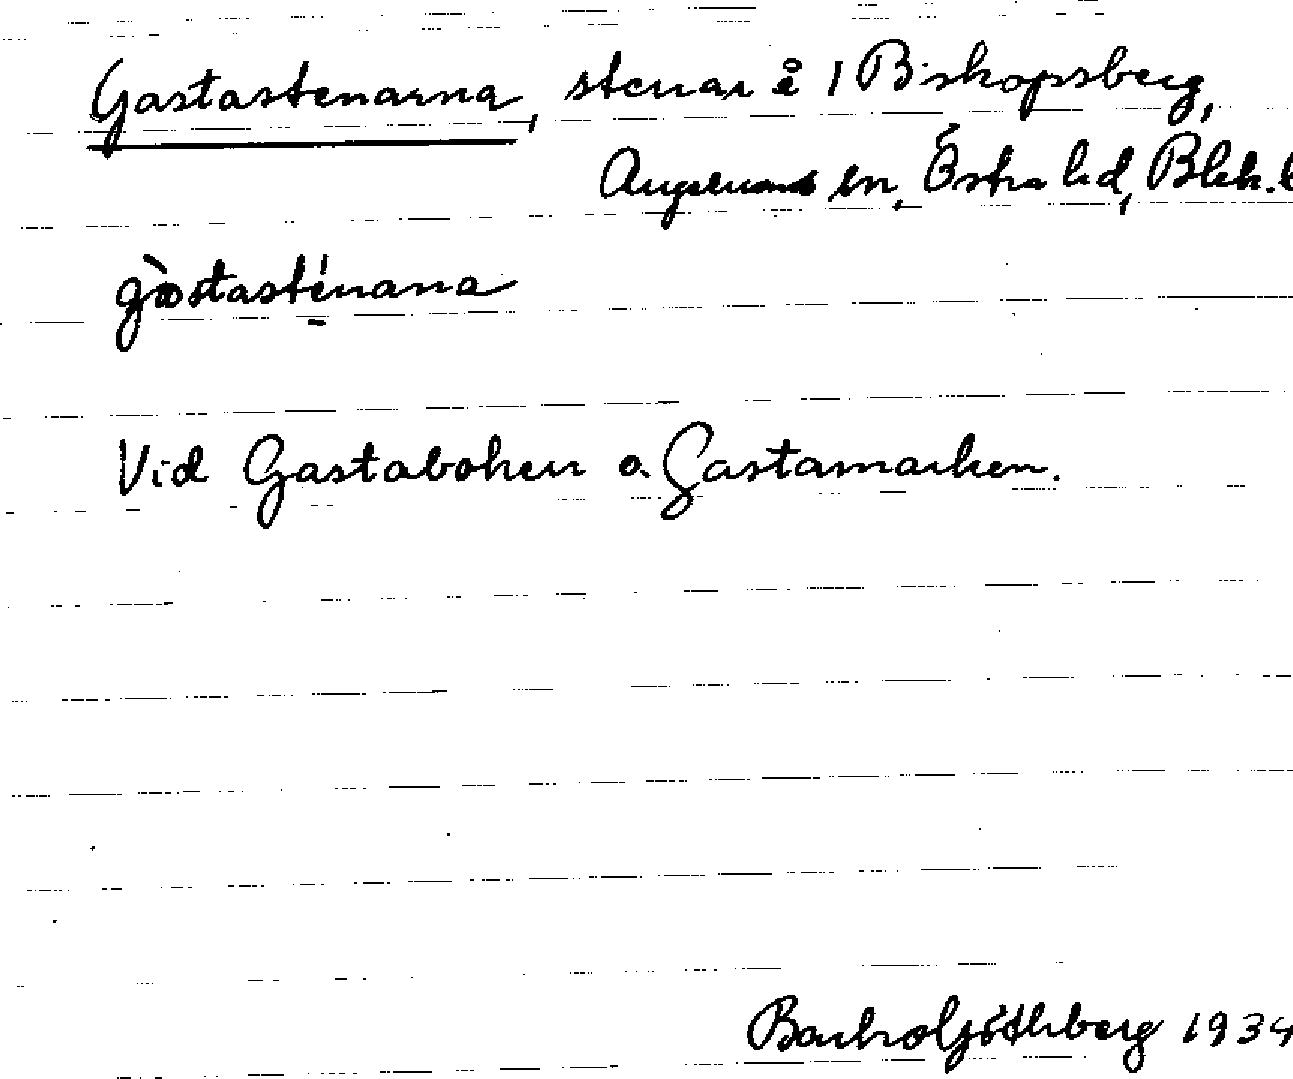 Gastastenarna, stenar å 1 Biskopsberg,
Augerums sn, Östra hd, Blek. l
gàstasténana
Vid Gastabohen o. Gastamarken.
Göthberg 1934